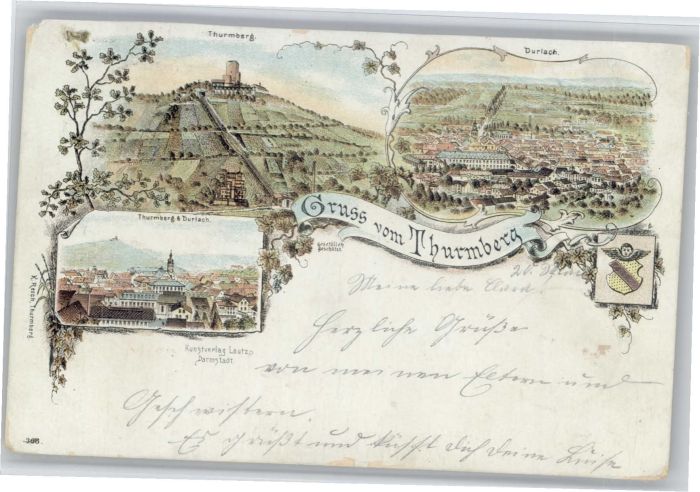 Thurmberg.
Durlach.
Thurmberg & Durlach.
Gruss vom Thurmberg
Gesetzlich
geschützt.
K. Resch, Thurmberg.
Kunstverlag Lautz,
Darmstadt.
Meine liebe
Herzliche Grüße
von meinen Eltern und
Geschwistern.
Es grüßt und küsst Dich deine Luise